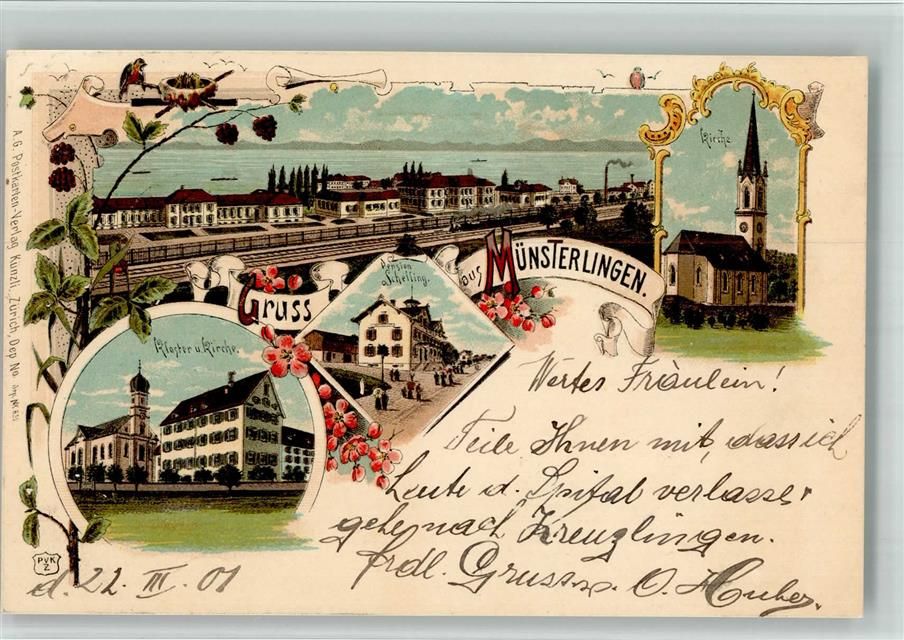 A. G. Postkarten-Verlag Künzli, Zürich, Dep No.
Kirche.
Gruss
aus
MÜNSTERLINGEN.
Pension
Schelling.
Kloster u. Kirche.
Wertes Fräulein!
Teile Ihnen mit, dass ich
heute d. Spital verlasse,
gehe nach Kreuzlingen.
frdl. Gruss O. Huber.
d. 22. III. 01
PVK
Z